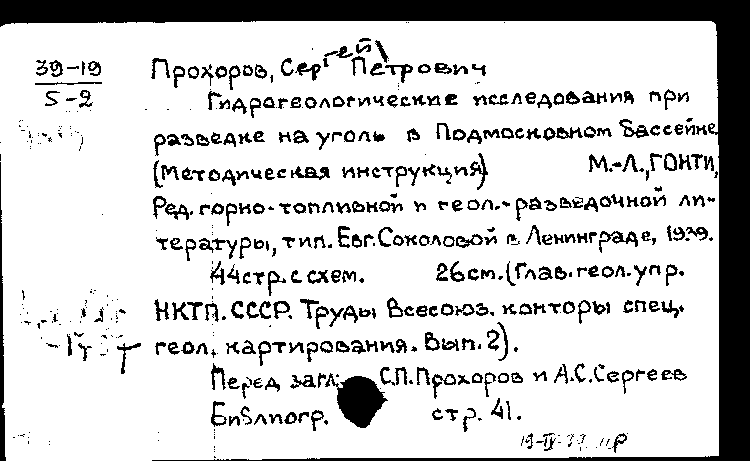 39-19
5-2
Прохоров, Сергей Петрович
Гидрогеологические исследования при
разведке на уголь в Подмосковном бассейне
(Методическая инструкция). М.-Л., ГОНТИ,
Ред. горно-топливной и геол.-разведочной ли-
тературы, тип. Евг. Соколовой в Ленинграде, 1939.
44 стр. с схем. 26 см. (Глав. геол. упр.
НКТП. СССР. Труды Всесоюз. конторы спец.
геол. картирования. Вып. 2).
Перед загл: С.П. Прохоров и А.С. Сергеев
Библиогр. стр. 41.